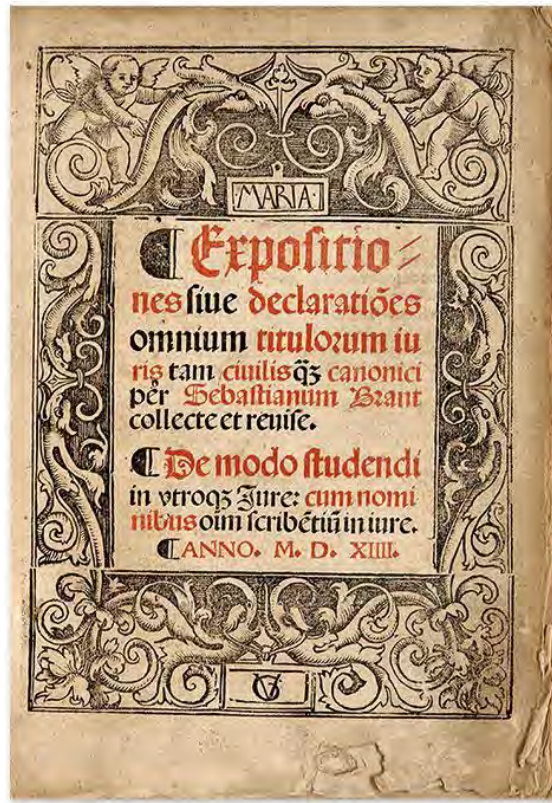 MARIA
¶ Expositio⸗
nes siue declaratiões
omnium titulorum iu
ris tam ciuilis q̃ꝫ canonici
per Sebastianum Brant
collecte et reuise.
¶ De modo studendi
in vtroqꝫ Iure: cum nomi
nibus oim̃ scribẽtiũ in iure.
¶ ANNO. M. D. XIIII.
VG